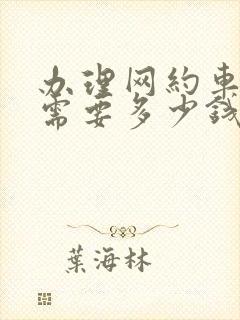 办理网约车
需要多少钱
葉海林